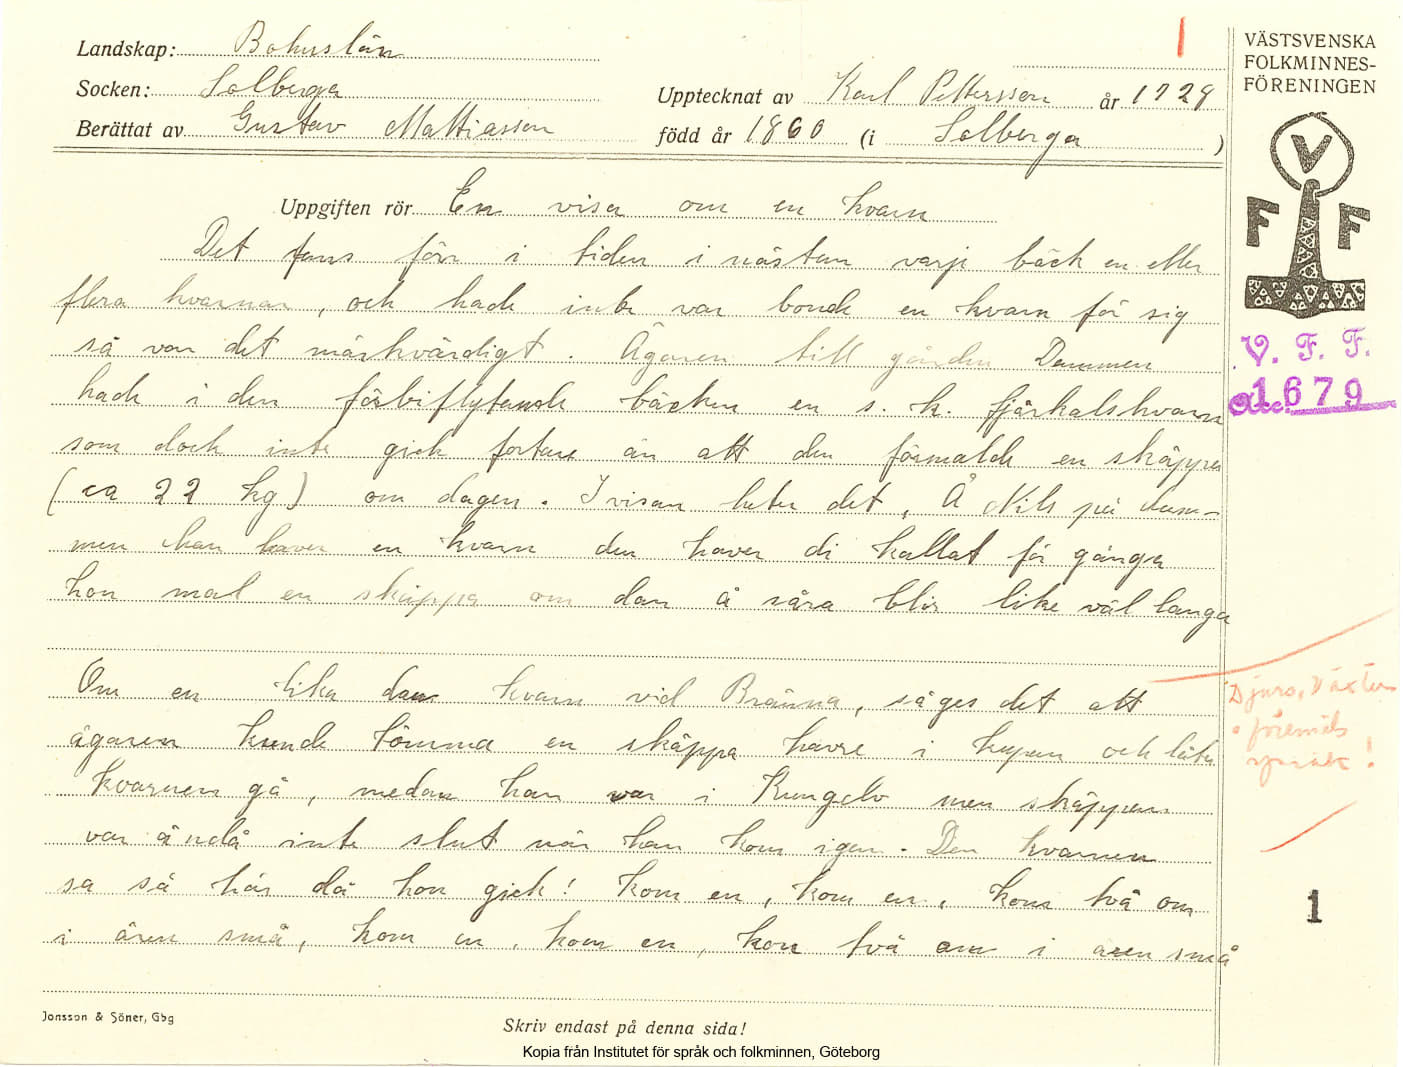 Landskap: Bohuslän
Socken: Solberga
Berättat av Gustav Mattiasson
Upptecknat av Karl Pettersson år 1929
född år 1860 (i Solberga )
VÄSTSVENSKA
FOLKMINNES-
FÖRENINGEN
V
F F
V. F. F.
Acc. 1679
Uppgiften rör En visa om en kvarn
Det fans förr i tiden i nästan varje bäck en eller
flera kvarnar, och hade inte var bonde en kvarn för sig
så var det märkvärdigt. Ägaren till gården Dammen
hade i den förbiflytande bäcken en s. k. fjärkalskvarn
som dock inte gick fortare än att den förmalde en skäppa
(ca 22 kg) om dagen. I visan heter det, Å Nils på dam-
men han haver en kvarn den haver di kallat för gånga
hon mal en skäppa om dan å såra blir like väl langa
Om en lika dan kvarn vid Bränna, säges det att
ägaren kunde tömma en skäppa havre i kupan och låta
kvarnen gå, medan han var i Kungelv men skäppan
var ändå inte slut när han kom igen. Den kvarnen
sa så här då hon gick! kom en, kom en, kom två om
i ären små, kom en, kom en, kom två om i aren små
Djurs, Växters
o föremåls
språk!
1
Jonsson & Söner, Gbg
Skriv endast på denna sida!
Kopia från Institutet för språk och folkminnen, Göteborg